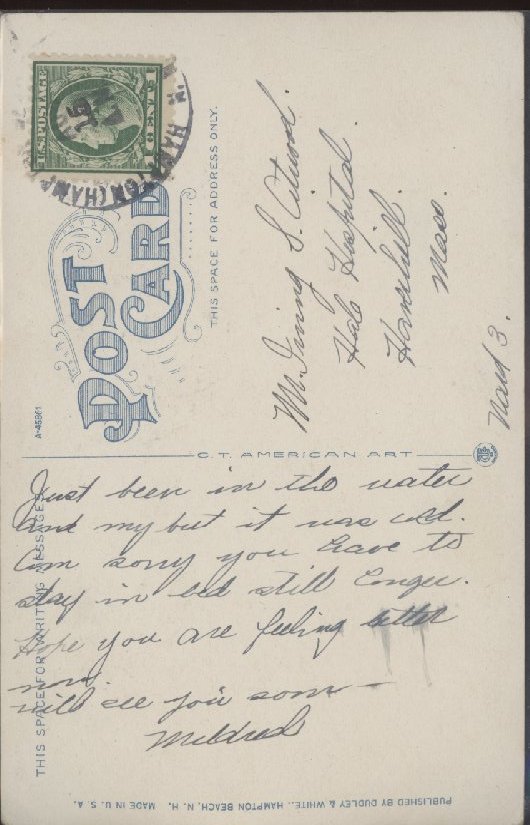 U.S. POSTAGE
HAMPTON
POST
CARD
THIS SPACE FOR ADDRESS ONLY.
Mr. Irving S. Atwood.
Hale Hospital
Haverhill.
Mass.
Ward 3.
A-45861
C. T. AMERICAN ART
THIS SPACE FOR WRITING MESSAGES
Just been in the water
and my but it was cold.
Am sorry you have to
stay in bed still longer.
Hope you are feeling better
now.
will see you soon
Mildred
PUBLISHED BY DUDLEY & WHITE., HAMPTON BEACH, N. H. MADE IN U. S. A.